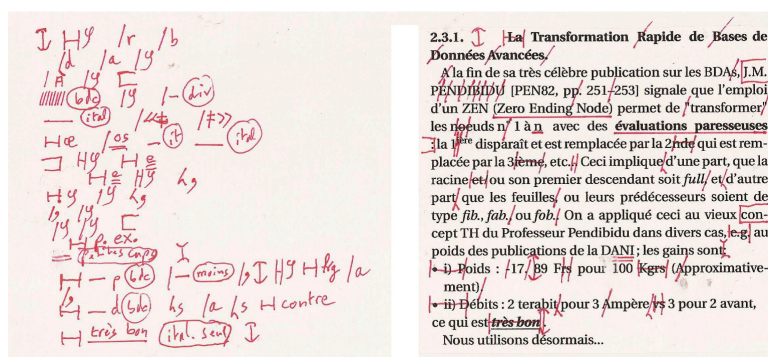 /r /b
/d /a
bdc div
ital
/os it ital
p. ex.
petites caps
p bdc moins kg /a
d bdc /a contre
très bon ital. seul
2.3.1. La Transformation Rapide de Bases de
Données Avancées.
A la fin de sa très célèbre publication sur les BDAs, J.M.
PENDIBIDU [PEN82, pp. 251–253] signale que l'emploi
d'un ZEN (Zero Ending Node) permet de "transformer"
les noeuds n° 1 à n avec des évaluations paresseuses
: la 1ère disparaît et est remplacée par la 2nde qui est rem-
placée par la 3ème, etc.. Ceci implique d'une part, que la
racine et ou son premier descendant soit full, et d'autre
part que les feuilles, ou leurs prédécesseurs soient de
type fib., fab. ou fob. On a appliqué ceci au vieux con-
cept TH du Professeur Pendibidu dans divers cas, e.g. au
poids des publications de la DANI ; les gains sont
• i) Poids : -17. 89 Frs pour 100 Kgrs (Approximative-
ment)
• ii) Débits : 2 terabit pour 3 Ampère vs 3 pour 2 avant,
ce qui est très bon.
Nous utilisons désormais...